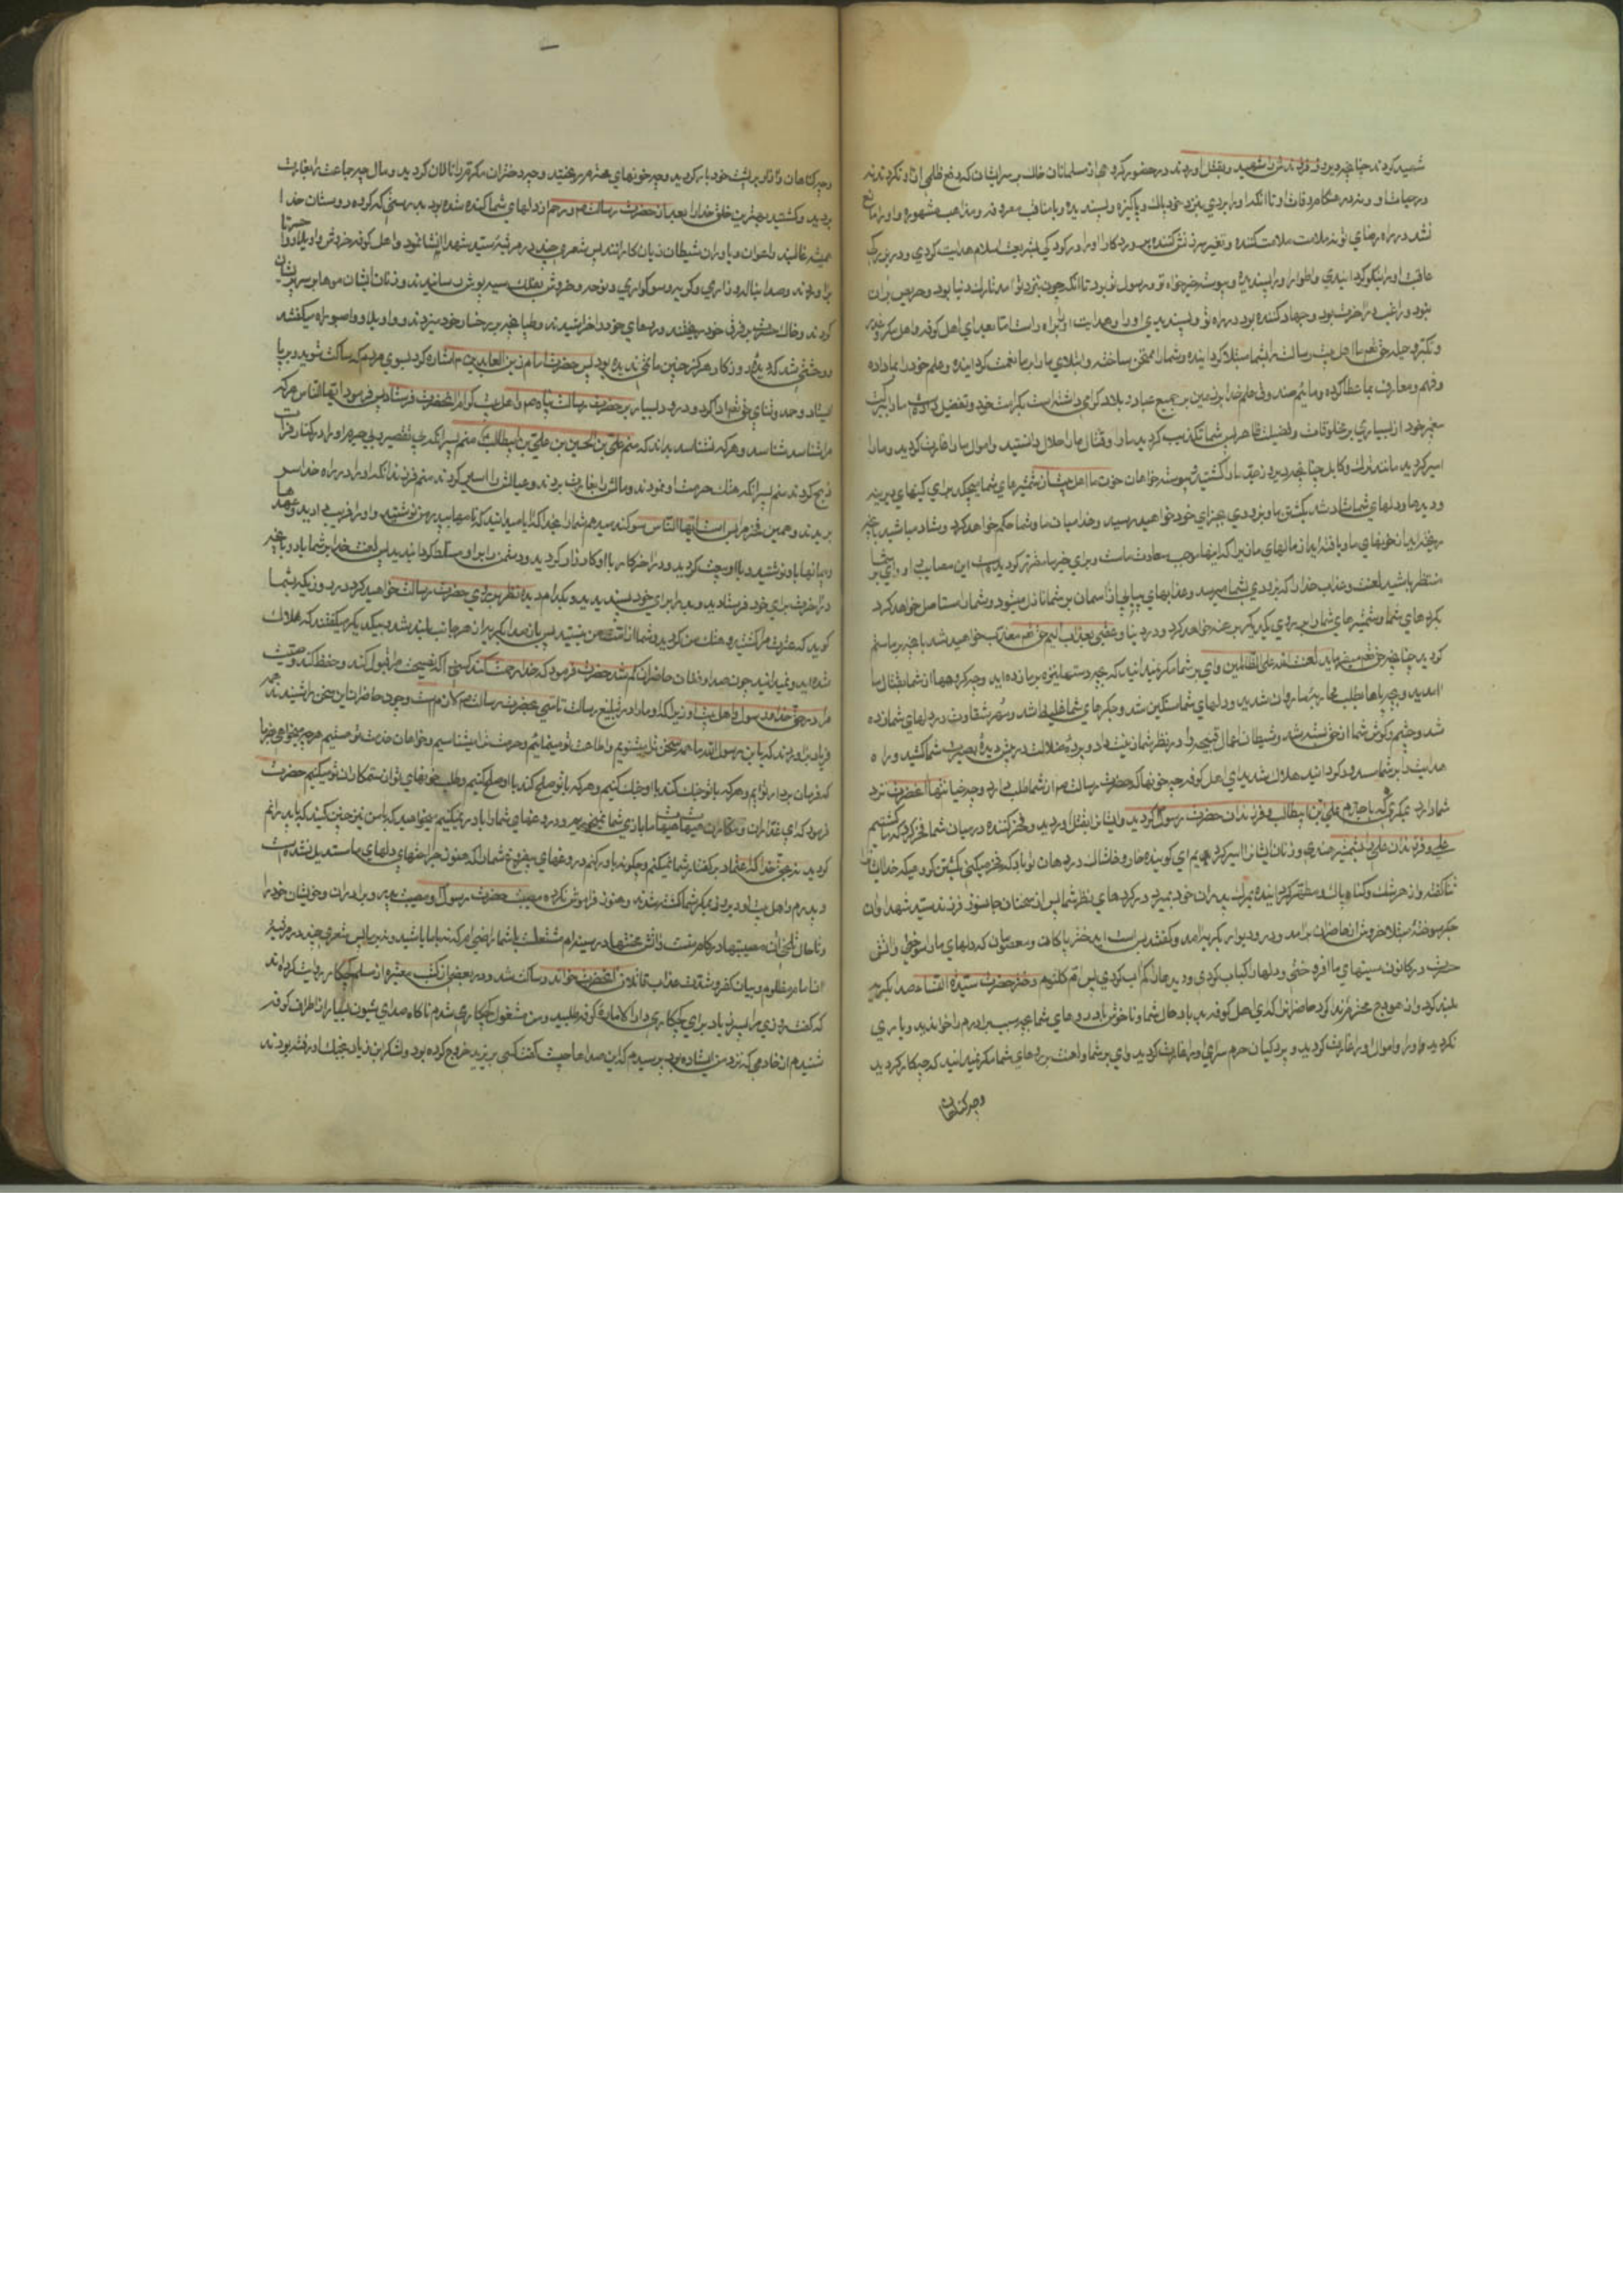 شهید کردند چنانچه دیروز فرزندش را شهید و بقتل اوردند در حضور گروهی از مسلمانان خاک بر سر ایشان که دفع ظلمی از او نکردند نه
در حیات او و نه در هنگام وفات او تا انکه او را بردی بنزد خود پاک و پاکیزه و پسندیده و با مناقب معروفه و مذاهب مشهوره و او را مانع
نشد در راه رضای تو ملامت ملامت کننده و تغییر سرزنش کننده پروردکارا او را در کودکی بشریعت اسلام هدایت کردی و در بزرکی
عاقبت او را نیکو کردانیدی و اطوار او را پسندیده و پیوسته خیرخواه تو و رسول تو بود تا انکه چون بنزد تو امد تارک دنیا بود و حریص بران
نبود و راغب در اخرت بود و جهاد کننده بود در راه تو و پسندیدی او را و هدایت او براه راست اما بعد ای اهل کوفه و اهل مکر و غدر
و تکبر و حیله حق تعم ما اهل بیت رسالت را بشما مبتلا کردانیده و شما را ممتحن ساخته و ابتلای ما را بر ما نعمت کردانیده و علم خود را بما داده
و فهم و معارف بما عطا کرده و مائیم صندوق علم خدا بر زمین بر جمیع عباد در بلاد کرامی داشته است بکرامت خود و تفضیل داده ما را ببرکت
پیغمبر خود از بسیاری بر مخلوقات و فضیلت ظاهر پس شما تکذیب کردید ما را و قتال ما را حلال دانستید و اموال ما را غارت کردید و ما را
اسیر کردید مانند ترک و کابل چنانچه دیروز جد ما را کشتید و پیوسته خواهان خون ما اهل بیت از شمشیرهای شما میچکد برای کینهای دیرینه
و دیده ها و دلهای شما شاد شد بکشتن ما و بزودی بجزای خود خواهید رسید و خدا میان ما و شما حکم خواهد کرد و شاد مباشید بانچه
ریخته اید از خونهای ما و یافته اید از مالهای ما زیرا که اینها موجب سعادت ماست
منتظر باشید لعنت و عذاب خدا را که بزودی بشما میرسد و عذابهای پیاپی از اسمان بر شما نازل میشود و شما را مستاصل خواهد کرد
بکردهای شما و شمشیرهای شما را بر روی یکدیکر برهنه خواهد کرد و در دنیا و عقبی بعذاب الیم حق تعم معذب خواهید شد بانچه بر ما ستم
کردید چنانچه حق تعم میفرماید لعنة الله علی الظالمین وای بر شما مکر نمیدانید که بچه دستها نیزه بر ما زده اید و چه گروهها از شما بقتال ما
امدید و بچه پاها بطلب محاربه ما روان شدید و دلهای شما سنکین شد و جکرهای شما غلیظ شد و مهر شقاوت بر دلهای شما زده
شد و چشم و کوش شما از حق بسته شد و شیطان اعمال قبیحه را در نظر شما زینت داد و پرده ضلالت در پیش دیده بصیرت شما کشید و راه
هدایت را بر شما مسدود کردانید هلاک شدید ای اهل کوفه چه خونها که حضرت رسالت صم از شما طلب دارد و چه خیانتها انحضرت نزد
شما دارد بمکری که با جدم علی بن ابیطالب و فرزندان حضرت رسول کردید و ایشان را بقتل اوردید و فخر کننده در میان شما فخر کرد که ما کشتیم
علی و فرزندان علی را بشمشیر هندی و زنان ایشان را اسیر کردیم ای کوینده خار و خاشاک در دهان تو باد که فخر میکنی بکشتن کروهیکه خدا ایشان
ثنا کفته و از هر شک و کناه پاک و مطهر کردانیده
جکر سوخته مبتلا خروش از حاضران برامد و در و دیوار بکریه درامد و کفتند بس است ایدختر پاکان و معصومان که دلهای ما را سوختی و اتش
حسرت در کانون سینهای ما افروختی و دلهای ما کباب کردی و دیدهای ما پر اب کردی پس ام کلثوم دختر حضرت سیدة النساء صدا بگریه
بلند کرد و از هودج محترم ندا کرد حاضران را که ای اهل کوفه بد باد حال شما و ناخوش باد روهای شما بچه سبب برادرم را خواندید و یاری
نکردید و او را و اموال او را غارت کردید و پردکیان حرم سرای او را غارت کردید وای بر شما و لعنت بر روهای شما مکر نمیدانید که چکار کردید
وچه کناهان
وچه کناهان و اوزار بر پشت خود بار کردید و چه خونهای محترم ریختید و چه دختران مکرم را نالان کردید و مال چه جماعت را بغارت
بردید و کشتید بهترین خلق خدا را بعد از حضرت رسالت صم و رحم از دلهای شما کنده شده بود بدرستی که کروه دوستان خدا
همیشه غالبند و اعوان و یاوران شیطان زیان کارانند پس شعری چند در مرثیه سید شهدا انشا نمود و اهل کوفه خروش واویلاه وا حسرتا
براوردند و صدا بناله و زاری و کریه و سوکواری و نوحه و خروش بفلک سیه پوش رسانیدند و زنان ایشان موها بر سر پریشان
کردند و خاک حسرت بر فرق خود ریختند و رویهای خود را خراشیدند و طپانچه بر رخسار خود میزدند و واویلاه واصبوراه میکفتند
و وحشتی شد که دیده روزکار هرکز چنین ماتمی ندیده بود پس حضرت امام زین العابدین م اشاره کرد بسوی مردم که ساکت شوید و برپا
ایستاد و حمد و ثنای حق تعم ادا کرد و درود بسیار بر حضرت رسالت پناه صم و اهل بیت کرام انحضرت فرستاد پس فرمود ایها الناس هرکه
مرا شناسد شناسد و هرکه نشناسد بداند که منم علی بن الحسین بن علی بن ابیطالب منم پسر انکه بی تقصیر و بی جرم او را در کنار فرات
ذبح کردند منم پسر انکه هتک حرمت او نمودند و مالش را بغارت بردند و عیالش را اسیر کردند منم فرزند انکه او را در راه خدا سر
بریدند و همین فخر مرا بس است ایها الناس سوکند میدهم شما را بخدا که ایا میدانید که نامها بپدر من نوشتید و او را فریب دادید و عهدها
و پیمانها باو نوشتید و با او بیعت کردید و در اخر کار با او کارزار کردید و دشمن را بر او مسلط کردانیدید پس لعنت خدا بر شما باد و بانچه
در اخرت برای خود فرستادید و بد رایی برای خود پسندیدید و بکدام دیده نظر بر روی حضرت رسالت خواهید کرد در روزیکه بشما
کوید که عترت مرا کشتید و هتک حرمت من کردید و شما از امت من نیستید پس باز صدا بکریه از هر جانب بلند شد و بیکدیکر میکفتند که هلاک
شده اید و نمیدانید چون صدا و فغان حاضران کم شد حضرت فرمود که خدا رحمت کند کسی را که نصیحت مرا قبول کند و حفظ کند وصیت
مرا در حق خدا و رسول و اهل بیت او زیرا که ما را در تبلیغ رسالت تاسی بحضرت رسالت صم لازم است و چون حاضران این سخن را شنیدند همه
فریاد براوردند که یابن رسول الله ما همه سخن تو را میشنویم و اطاعت تو مینمائیم و حرمت ترا میشناسیم و خواهان خدمت تو هستیم هرچه میخواهی بفرما
که فرمان برداریم و هرکه با تو جنک کند با او جنک کنیم و هرکه با تو صلح کند با او صلح کنیم و طلب خونهای تو از ستمکاران تو میکنیم حضرت
فرمود که ای غداران و مکاران هیهات هیهات ما بازی شما نمیخوریم و دروغهای شما را باور نمیکنیم میخواهید که با من نیز چنین کنید که با پدرانم
کردید نه بحق خدا که اعتماد بر کفتار شما نمیکنم و چکونه باور کنم دروغهای بیفروغ شما را که هنوز جراحتهای دلهای ما مندمل نشده است
و پدرم و اهل بیت او دیروز بمکر شما کشته شدند و هنوز فراموش نکرده مصیبت حضرت رسول و مصیبت پدر و برادران و خویشان خود را
و تا حال تلخی ان مصیبتها در کام منست و اتش محنتها در سینه ام مشتعلست با شما راضی ام که نه با ما باشید و نه بر ما پس شعری چند در مرثیه
ان امام مظلوم و بیان کفر و شدت عذاب قاتلان انحضرت خواند و ساکت شد و در بعضی از کتب معتبره از مسلم کچکار روایت کرده اند
که کفت روزی مرا پسر زیاد برای کچکاری دار الاماره کوفه طلبید و من مشغول کچکاری شدم ناکاه صدای شیون بسیار از اطراف کوفه
شنیدم از خادمی که نزد من ایستاده بود پرسیدم که این صداها چیست کفت کسی بر یزید خروج کرده بود و لشکر ابن زیاد بجنک او رفته بودند